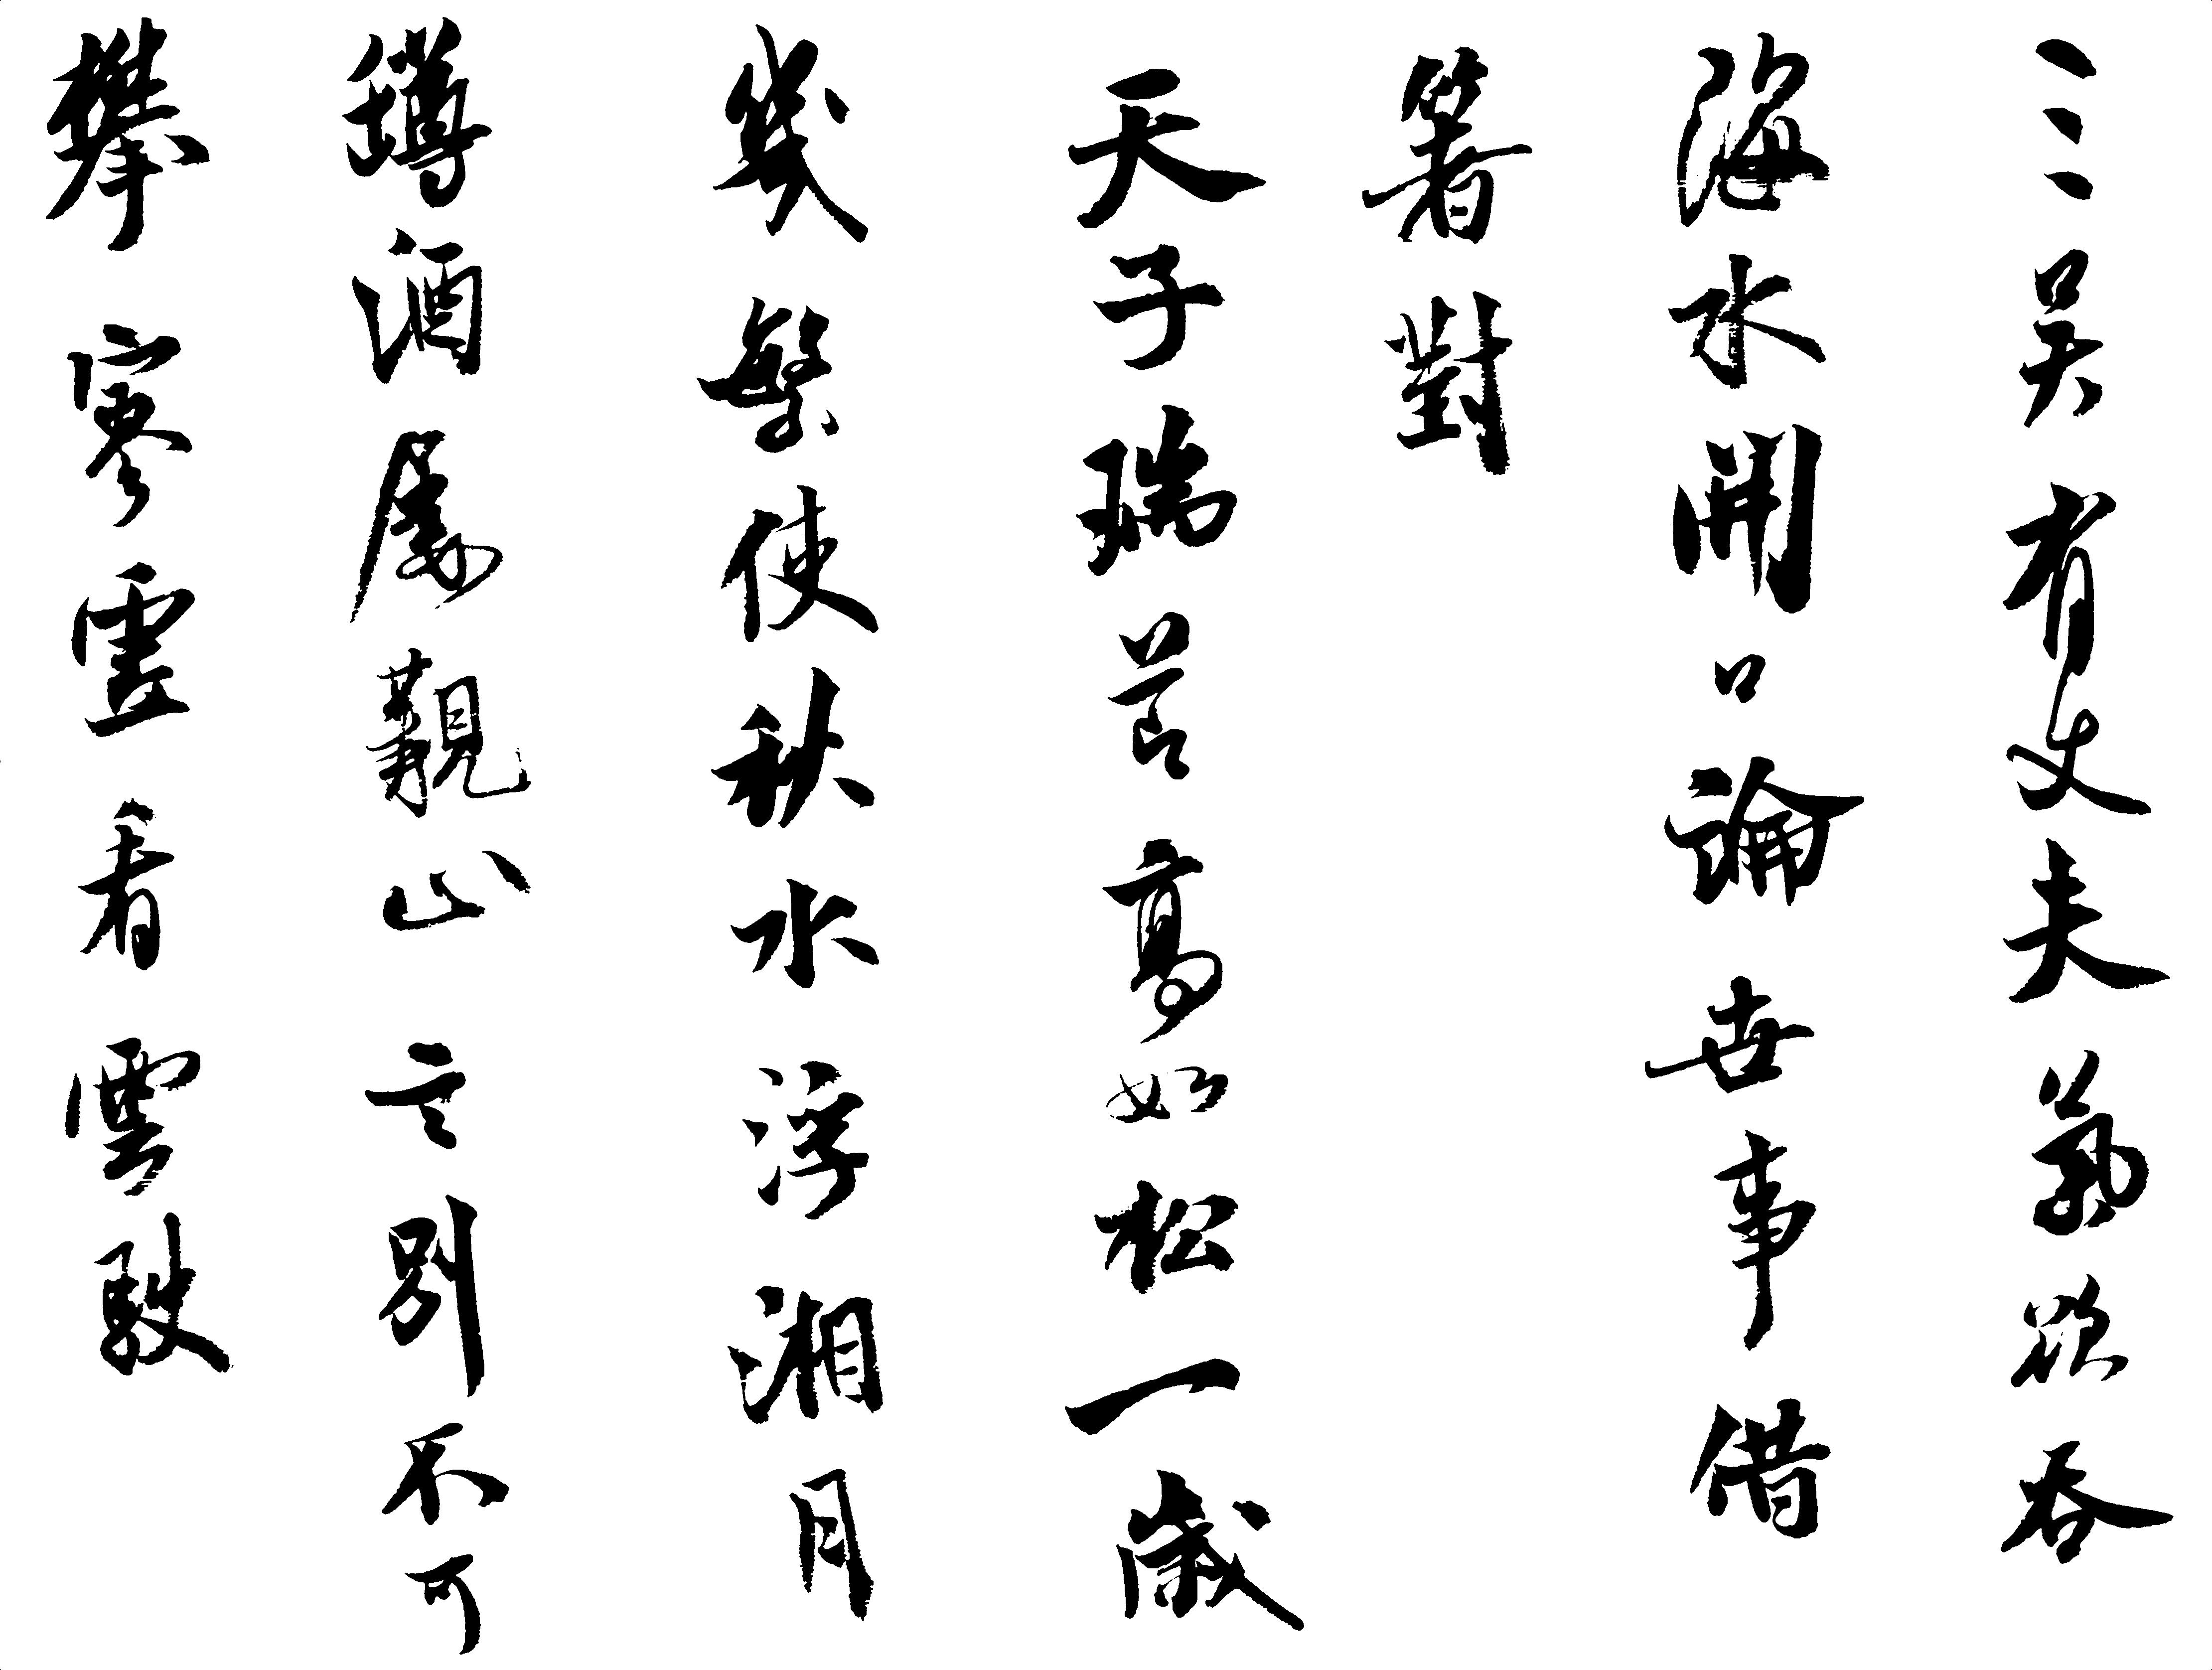 三吳有丈夫氣欲吞
海水開口論世事借
箸對
天子瑞高如松一歲
幾繫使秋水浮湘月
罇酒屬觀山言別不可
攀寥看雲駛